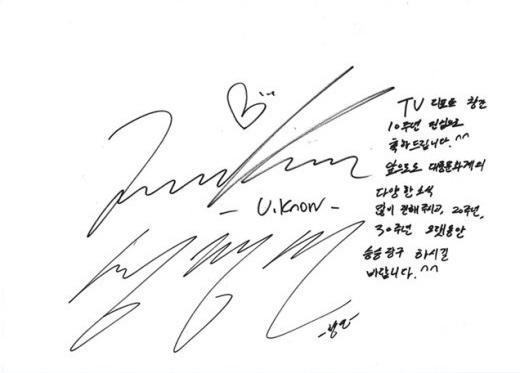 - U.Know -
TV 리포트 창간
10주년 진심으로
축하드립니다. ^^
앞으로도 대중문화계의
다양한 소식
많이 전해주시고, 20주년,
30주년 오랫동안
승승장구 하시길
바랍니다. ^^